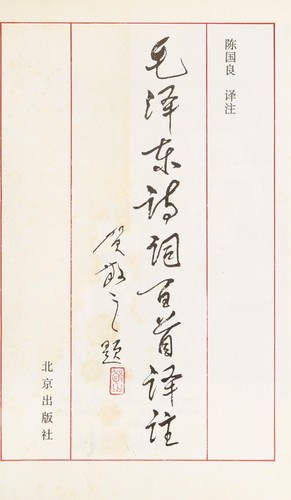 陈国良 译注
毛泽东诗词百首译注
贺敬之题
北京出版社